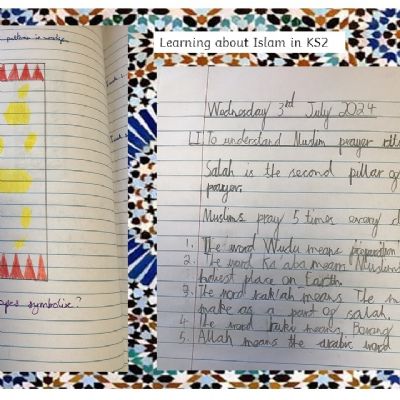 pillars in worship
symbolise?
Learning about Islam in KS2
Wednesday 3rd July 2024
LI To understand Muslim prayer
Salah is the second pillar of
prayer.
Muslims pray 5 times every d
1. The word Wudu means preparation
2. The word Ka aba means Muslims
holiest place on Earth.
3. The word rak'ah means The m
make as a part of salah.
4. The word means,
5. Allah means the arabic word